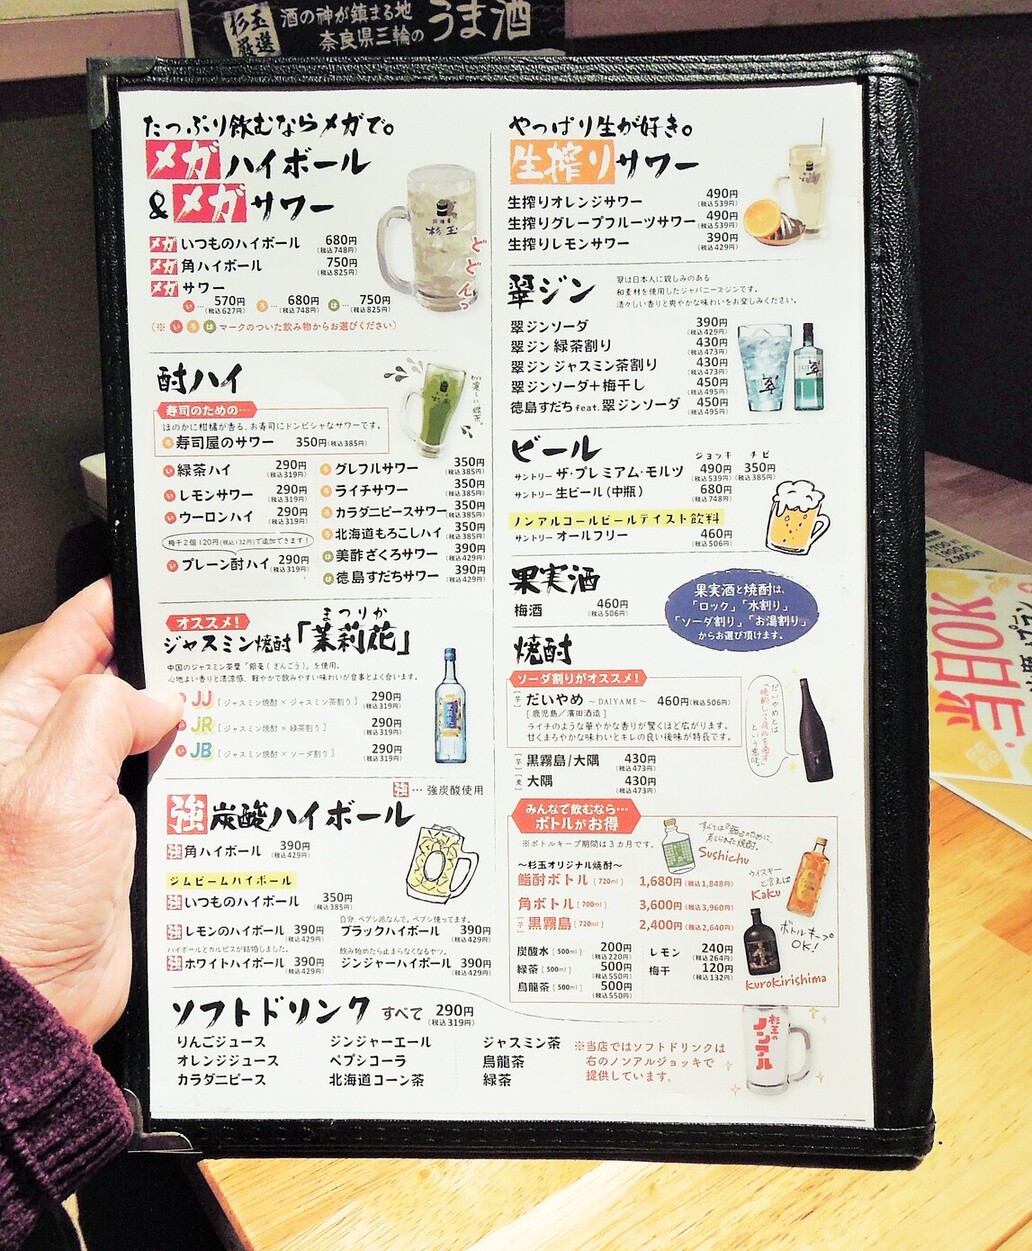 杉玉
厳選
酒の神が鎮まる地
奈良県三輪の
うま酒
たっぷり飲むならメガで。
メガハイボール
&メガサワー
杉玉
どどんっ
メガ いつものハイボール 680円(税込748円)
メガ 角ハイボール 750円(税込825円)
メガ サワー
い…570円(税込627円) ろ…680円(税込748円) は…750円(税込825円)
(※いろはマークのついた飲み物からお選びください)
酎ハイ
寿司のための…
ほのかに柑橘が香る、お寿司にドンピシャなサワーです。
ろ 寿司屋のサワー 350円(税込385円)
い 緑茶ハイ 290円(税込319円)
い レモンサワー 290円(税込319円)
い ウーロンハイ 290円(税込319円)
梅干2個120円(税込132円)で追加できます!
い プレーン酎ハイ 290円(税込319円)
ろ グレフルサワー 350円(税込385円)
ろ ライチサワー 350円(税込385円)
ろ カラダニピースサワー 350円(税込385円)
ろ 北海道もろこしハイ 350円(税込385円)
は 美酢ざくろサワー 390円(税込429円)
は 徳島すだちサワー 390円(税込429円)
オススメ!
まつりか
ジャスミン焼酎「茉莉花」
中国のジャスミン茶葉「銀毫(ぎんごう)」を使用。
心地よい香りと清涼感、軽やかで飲みやすい味わいが食事とよく合います。
JJ [ジャスミン焼酎×ジャスミン茶割り] 290円(税込319円)
い JR [ジャスミン焼酎×緑茶割り] 290円(税込319円)
い JB [ジャスミン焼酎×ソーダ割り] 290円(税込319円)
強…強炭酸使用
強炭酸ハイボール
強 角ハイボール 390円(税込429円)
ジムビームハイボール
強 いつものハイボール 350円(税込385円)
強 レモンのハイボール 390円(税込429円)
自分、ペプシ派なんで。ペプシ使ってます。
ブラックハイボール 390円(税込429円)
ハイボールとカルピスが結婚しました。
強 ホワイトハイボール 390円(税込429円)
飲み始めたら止まらなくなるヤツ。
ジンジャーハイボール 390円(税込429円)
やっぱり生が好き。
生搾りサワー
生搾りオレンジサワー 490円(税込539円)
生搾りグレープフルーツサワー 490円(税込539円)
生搾りレモンサワー 390円(税込429円)
翠ジン
翠は日本人に親しみのある
和素材を使用したジャパニーズジンです。
清々しい香りと爽やかな味わいをお楽しみください。
翠ジンソーダ 390円(税込429円)
翠ジン 緑茶割り 430円(税込473円)
翠ジン ジャスミン茶割り 430円(税込473円)
翠ジンソーダ+梅干し 450円(税込495円)
徳島すだち feat.翠ジンソーダ 450円(税込495円)
翠
ビール
ジョッキ チビ
サントリー ザ・プレミアム・モルツ 490円(税込539円) 350円(税込385円)
サントリー 生ビール(中瓶) 680円(税込748円)
ノンアルコールビールテイスト飲料
サントリー オールフリー 460円(税込506円)
果実酒
梅酒 460円(税込506円)
果実酒と焼酎は、
「ロック」「水割り」
「ソーダ割り」「お湯割り」
からお選び頂けます。
焼酎
ソーダ割りがオススメ!
[芋] だいやめ ~DAIYAME~ 460円(税込506円)
[鹿児島/濱田酒造]
ライチのような華やかな香りが驚くほど広がります。
甘くまろやかな味わいとキレの良い後味が特長です。
だいやめとは
「晩酌して疲れを癒す」
という意味。
[芋] 黒霧島/大隅 430円(税込473円)
[麦] 大隅 430円(税込473円)
みんなで飲むなら…
ボトルがお得
※ボトルキープ期間は3カ月です。
~杉玉オリジナル焼酎~
鮨酎ボトル [720ml] 1,680円(税込1,848円)
角ボトル [700ml] 3,600円(税込3,960円)
[芋] 黒霧島 [720ml] 2,400円(税込2,640円)
炭酸水 [500ml] 200円(税込220円)
緑茶 [500ml] 500円(税込550円)
烏龍茶 [500ml] 500円(税込550円)
レモン 240円(税込264円)
梅干 120円(税込132円)
Sushichu
ウイスキーと言えば
Kaku
ボトルキープ
OK!
kurokirishima
ソフトドリンク すべて 290円(税込319円)
りんごジュース
オレンジジュース
カラダニピース
ジンジャーエール
ペプシコーラ
北海道コーン茶
ジャスミン茶
烏龍茶
緑茶
※当店ではソフトドリンクは
右のノンアルジョッキで
提供しています。
杉玉の
ノンアル
当日OK